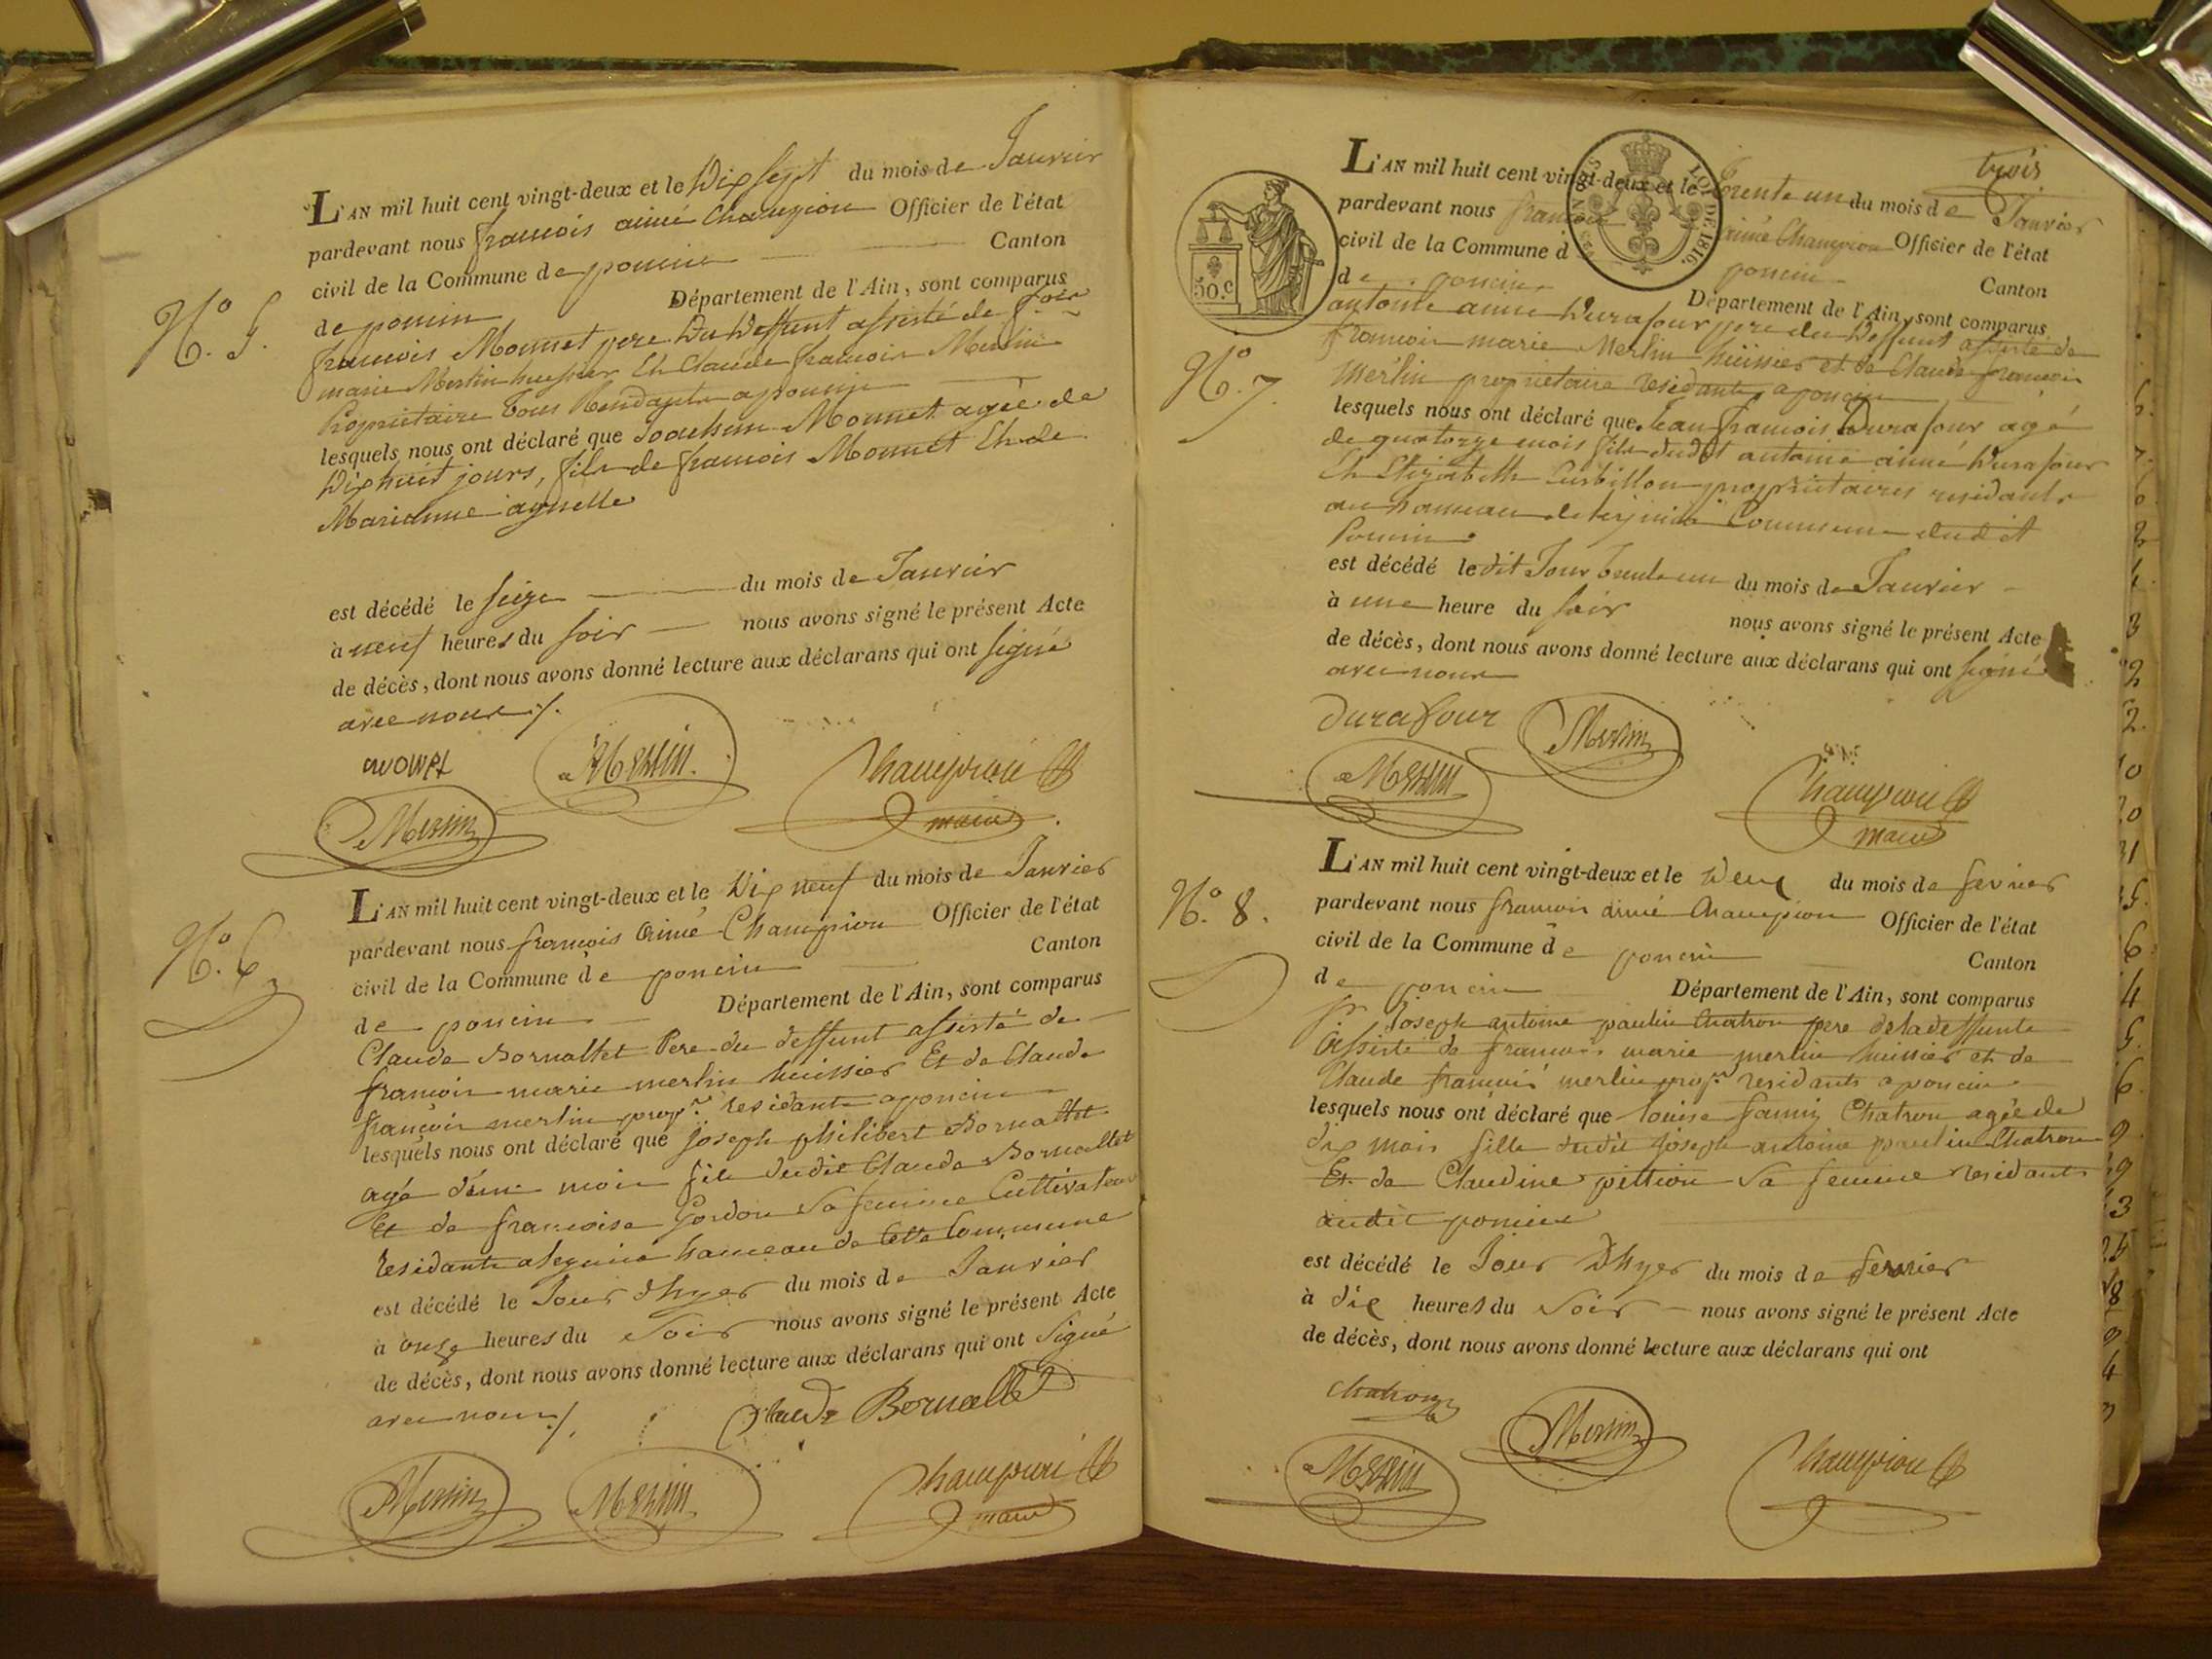 L'AN mil huit cent vingt-deux et le Dix sept du mois de Janvier
pardevant nous francois aimé Champion Officier de l'état
civil de la Commune de poncin Canton
de poncin Département de l'Ain, sont comparus
N.o 5.
francois Monnet pere Du Deffunt assisté de f.ois
marie Merlin huissier Et Claude francois Merlin
Proprietaire Tous Residants a poncin
lesquels nous ont déclaré que Joachim Monnet agée de
Dix huit jours, fils de francois Monnet Et de
Marianne
est décédé le seize du mois de Janvier
à neuf heures du soir nous avons signé le présent Acte
de décès, dont nous avons donné lecture aux déclarans qui ont signé
avec nous ./.
MONNET Merlin Champion
Merlin maire
L'AN mil huit cent vingt-deux et le Dix neuf du mois de Janvier
pardevant nous francois Aimé Champion Officier de l'état
N.o 6
civil de la Commune de poncin Canton
de poncin Département de l'Ain, sont comparus
Claude Bornallet Pere du deffunt assisté de
francois marie merlin huissier Et de Claude
francois merlin prop.re residants a poncin
lesquels nous ont déclaré que joseph philibert Bornallet
agé d'un mois fils dudit Claude Bornallet
Et de francoise Gordon Sa femme Cultivateurs
residants a hameau de Cette Commune
est décédé le Jour d'hyer du mois de Janvier
à onze heures du Soir nous avons signé le présent Acte
de décès, dont nous avons donné lecture aux déclarans qui ont Signé
avec nous ./.
Claude Bornallet
Merlin Merlin Champion
maire
trois
L'AN mil huit cent vingt-deux et le Trente un du mois de Janvier
pardevant nous francois aimé Champion Officier de l'état
civil de la Commune d poncin Canton
de poncin Département de l'Ain, sont comparus
LOI DE 1816.
50.c
N.o 7.
antoine aimé Durafour pere du Deffunt assisté de
francois marie Merlin huissier et de Claude francois
Merlin proprietaire residants a poncin
lesquels nous ont déclaré que Jean francois Durafour agé
de quatorze mois fils dudit antoine aimé Durafour
Et Elizabeth Curbillon proprietaires residants
au hameau de Commune dudit
Poncin
est décédé le dit Jour trente un du mois de Janvier
à une heure du soir nous avons signé le présent Acte
de décès, dont nous avons donné lecture aux déclarans qui ont signé
avec nous
Durafour Merlin
Merlin Champion
maire
L'AN mil huit cent vingt-deux et le Deux du mois de fevrier
N.o 8.
pardevant nous francois aimé Champion Officier de l'état
civil de la Commune de poncin Canton
de poncin Département de l'Ain, sont comparus
Joseph antoine paulin Chatron pere de la deffunte
Assisté de francois marie merlin huissier et de
Claude francois merlin prop.re residants a poncin
lesquels nous ont déclaré que louise fanny Chatron agée de
dix mois fille dudit joseph antoine paulin Chatron
Et de Claudine pittion Sa femme residants
audit poncin
est décédé le Jour D'hyer du mois de fevrier
à dix heures du Soir nous avons signé le présent Acte
de décès, dont nous avons donné lecture aux déclarans qui ont
Chatron Merlin
Merlin Champion